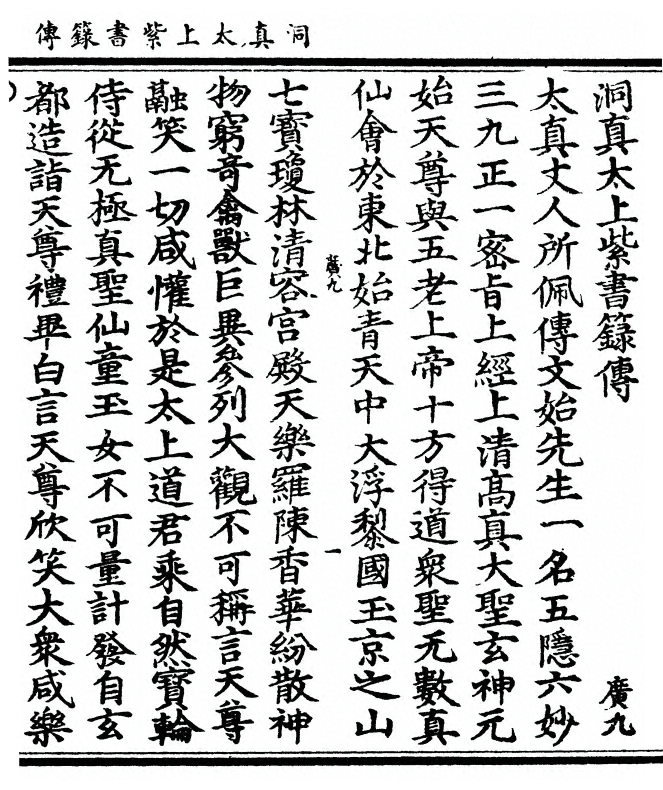 洞真太上紫書籙傳
洞真太上紫書籙傳 廣九
太真丈人所佩傳文始先生一名五隱六妙
三九正一密旨上經上清高真大聖玄神元
始天尊與五老上帝十方得道衆聖无數真
仙會於東北始青天中大浮黎國玉京之山
廣九 一
七寶瓊林清容宫殿天樂羅陳香華紛散神
物窮竒禽獸巨異參列大觀不可稱言天尊
融笑一切咸懽於是太上道君乘自然寶輪
侍從无極真聖仙童玉女不可量計發自玄
都造詣天尊禮畢白言天尊欣笑大衆咸樂